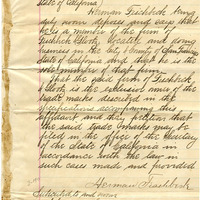 State of California,
Herman Fischbeck being
duly sworn deposes and says that
he is a member of the firm of
Fischbeck & Glootz, located and doing
business in the City & County of San Francisco
State of California and that he is the
member of that firm.
That the said firm of Fischbeck
& Glootz is the exclusive owner of the
trade marks described in the
specifications accompanying this
affidavit and they petition that
the said trade marks may be
filed in the office of the Secretary
of the State of California in
accordance with the law in
such cases made and provided
Herman Fischbeck
Subscribed and sworn